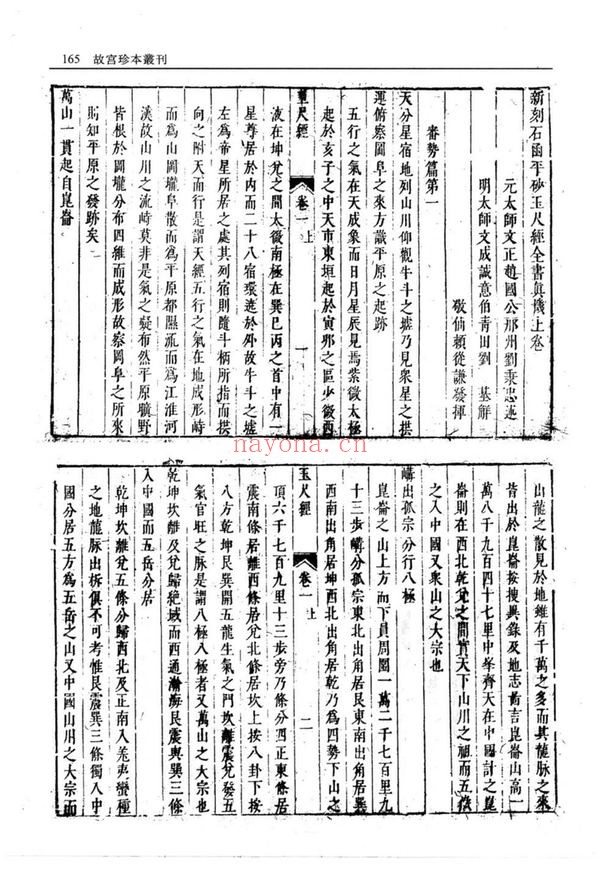 165 故宮珍本叢刊
新刻石函平砂玉尺經全書真機上卷
元太師文正趙國公邢州劉秉忠述
明太師文成誠意伯青田劉 基解
敬仙賴從謙發揮
審勢篇第一
天分星宿地列山川仰觀牛斗之墟乃見衆星之拱
運俯察岡阜之來方識平原之起跡
五行之氣在天成象而日月星辰見焉紫微太極
起於亥子之中天市東垣起於寅卯之區少微西
玉尺經 卷一 上 一
液在坤兌之間太微南極在巽巳丙之首中有一
星尊居於内而二十八宿環遶於外故牛斗之墟
左為帝星所居之處其列宿則隨斗柄所指而拱
向之附天而行是謂天經五行之氣在地成形峙
而為山岡壠阜散而為平原都隰流而為江淮河
漢故山川之流峙莫非是氣之凝布然平原曠野
皆根於岡壠分布四維而成形故察岡阜之所來
則知平原之發跡矣
萬山一貫起自崑崙
山龍之散見於地雖有千萬之多而其龍脉之來
皆出於崑崙按捜異錄及地志所言崑崙山高一
萬八千九百四十七里中峯齊天在中國計之崑
崙則在西北乾兌之間實天下山川之祖而五條
之入中國又衆山之大宗也
嶙出孤宗分行八極
崑崙之山上方而下員周圍一萬二千七百里九
十三步嶙分孤宗東北出角居艮東南出角居巽
西南出角居坤西北出角居乾乃為四勢下山之
玉尺經 卷一 上 二
頂六千七百九里十三步旁乃條分四正東條居
震南條居離西條居兌北條居坎上按八卦下按
八方乾坤艮巽開五龍生氣之門坎離震兌發五
氣官旺之龍脉是謂八極八極者又萬山之大宗也
乾坤坎離及兌歸絶域而西通瀚海艮震與巽三條
入中國而五岳分居
乾坤坎離兌五條分歸西北及正南入羌夷蠻種
之地龍脉出拆俱不可考惟艮震巽三條獨入中
國分居五方為五岳之山又中國山川之大宗而
nayona.cn